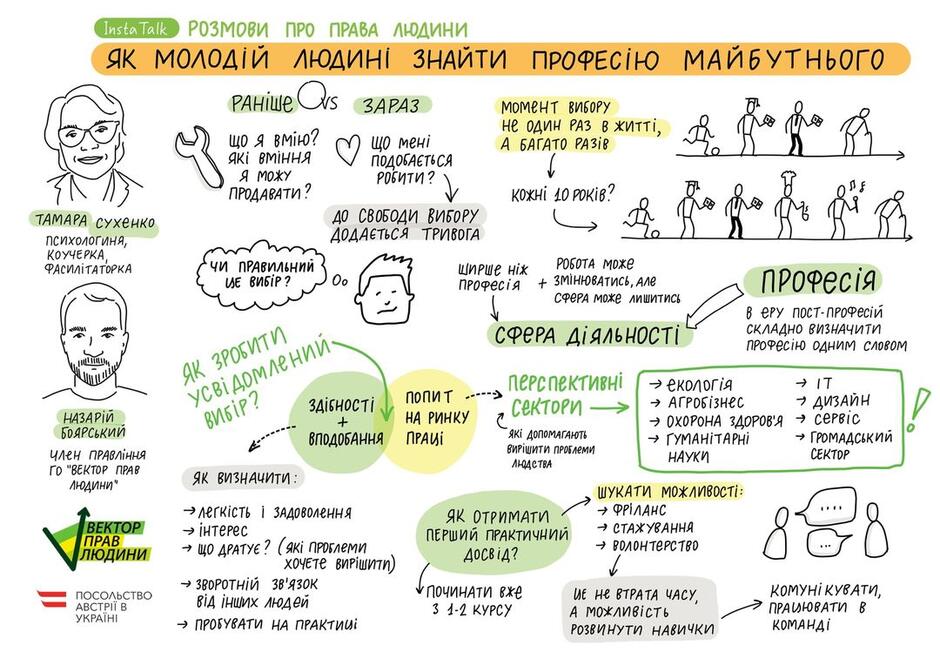 InstaTalk РОЗМОВИ ПРО ПРАВА ЛЮДИНИ
ЯК МОЛОДІЙ ЛЮДИНІ ЗНАЙТИ ПРОФЕСІЮ МАЙБУТНЬОГО
ТАМАРА СУХЕНКО
ПСИХОЛОГИНЯ,
КОУЧЕРКА,
ФАСИЛІТАТОРКА
НАЗАРІЙ
БОЯРСЬКИЙ
ЧЛЕН ПРАВЛІННЯ
ГО "ВЕКТОР ПРАВ
ЛЮДИНИ"
ВЕКТОР
ПРАВ
ЛЮДИНИ
ПОСОЛЬСТВО
АВСТРІЇ В
УКРАЇНІ
РАНІШЕ VS ЗАРАЗ
ЩО Я ВМІЮ?
ЯКІ ВМІННЯ
Я МОЖУ
ПРОДАВАТИ?
ЩО МЕНІ
ПОДОБАЄТЬСЯ
РОБИТИ?
ДО СВОБОДИ ВИБОРУ
ДОДАЄТЬСЯ ТРИВОГА
ЧИ ПРАВИЛЬНИЙ
ЦЕ ВИБІР?
МОМЕНТ ВИБОРУ
НЕ ОДИН РАЗ В ЖИТТІ,
А БАГАТО РАЗІВ
КОЖНІ 10 РОКІВ?
ПРОФЕСІЯ
В ЕРУ ПОСТ-ПРОФЕСІЙ
СКЛАДНО ВИЗНАЧИТИ
ПРОФЕСІЮ ОДНИМ СЛОВОМ
ШИРШЕ НІЖ
ПРОФЕСІЯ
+ РОБОТА МОЖЕ
ЗМІНЮВАТИСЬ, АЛЕ
СФЕРА МОЖЕ ЛИШИТИСЬ
СФЕРА ДІЯЛЬНОСТІ
ЯК ЗРОБИТИ
УСВІДОМЛЕНИЙ
ВИБІР?
ЗДІБНОСТІ
+
ВПОДОБАННЯ
ПОПИТ
НА РИНКУ
ПРАЦІ
ПЕРСПЕКТИВНІ
СЕКТОРИ
ЯКІ ДОПОМАГАЮТЬ
ВИРІШИТИ ПРОБЛЕМИ
ЛЮДСТВА
→ ЕКОЛОГІЯ
→ АГРОБІЗНЕС
→ ОХОРОНА ЗДОРОВ'Я
→ ГУМАНІТАРНІ
НАУКИ
→ ІТ
→ ДИЗАЙН
→ СЕРВІС
→ ГРОМАДСЬКИЙ
СЕКТОР
!
ЯК ВИЗНАЧИТИ:
→ ЛЕГКІСТЬ І ЗАДОВОЛЕННЯ
→ ІНТЕРЕС
→ ЩО ДРАТУЄ? (ЯКІ ПРОБЛЕМИ
ХОЧЕТЕ ВИРІШИТИ)
→ ЗВОРОТНІЙ ЗВ'ЯЗОК
ВІД ІНШИХ ЛЮДЕЙ
→ ПРОБУВАТИ НА ПРАКТИЦІ
ЯК ОТРИМАТИ
ПЕРШИЙ ПРАКТИЧНИЙ
ДОСВІД?
ПОЧИНАТИ ВЖЕ
З 1-2 КУРСУ
ШУКАТИ МОЖЛИВОСТІ:
→ ФРІЛАНС
→ СТАЖУВАННЯ
→ ВОЛОНТЕРСТВО
ЦЕ НЕ ВТРАТА ЧАСУ,
А МОЖЛИВІСТЬ
РОЗВИНУТИ НАВИЧКИ
КОМУНІКУВАТИ,
ПРАЦЮВАТИ В
КОМАНДІ